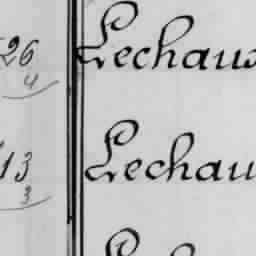 26 Lechaus
4
13 Lechau
3